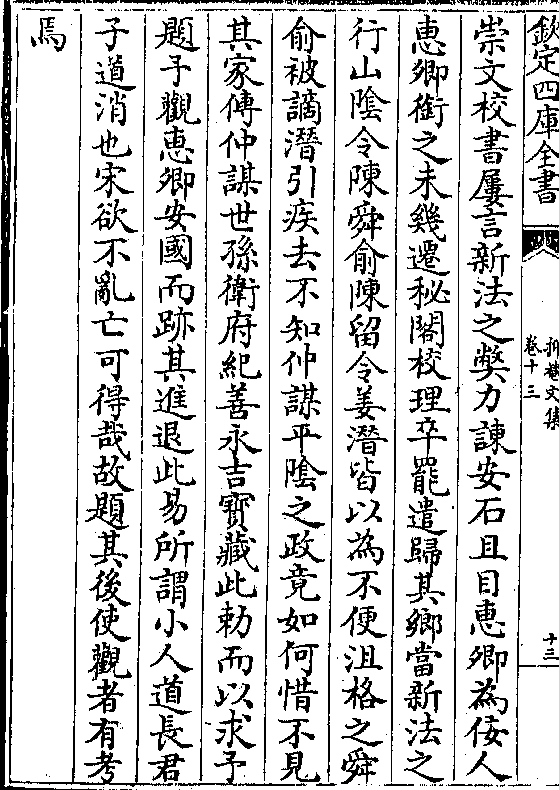 欽定四庫全書
抑菴文集
卷十三
十三
崇文校書屢言新法之弊力諌安石且目惠卿為佞人
惠卿銜之未幾遷秘閣校理卒罷遣歸其鄉當新法之
行山陰令陳舜俞陳留令姜潛皆以為不便沮格之舜
俞被謫潛引疾去不知仲謀平陰之政竟如何惜不見
其家傳仲謀世孫衛府紀善永吉寳藏此勅而以求予
題予觀惠卿安國而跡其進退此易所謂小人道長君
子道消也宋欲不亂亡可得哉故題其後使觀者有考
焉